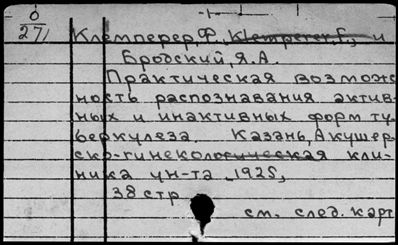 0
27/
Клемперер, Ф. Klemperer, F., и
Бродский, Я. А.
Практическая возмож
ность распознавания актив-
ных и инактивных форм ту-
беркулеза. Казань, Акушер-
ско-гинекологическая кли-
ника ун-та 1925,
38 стр
см. след. карт